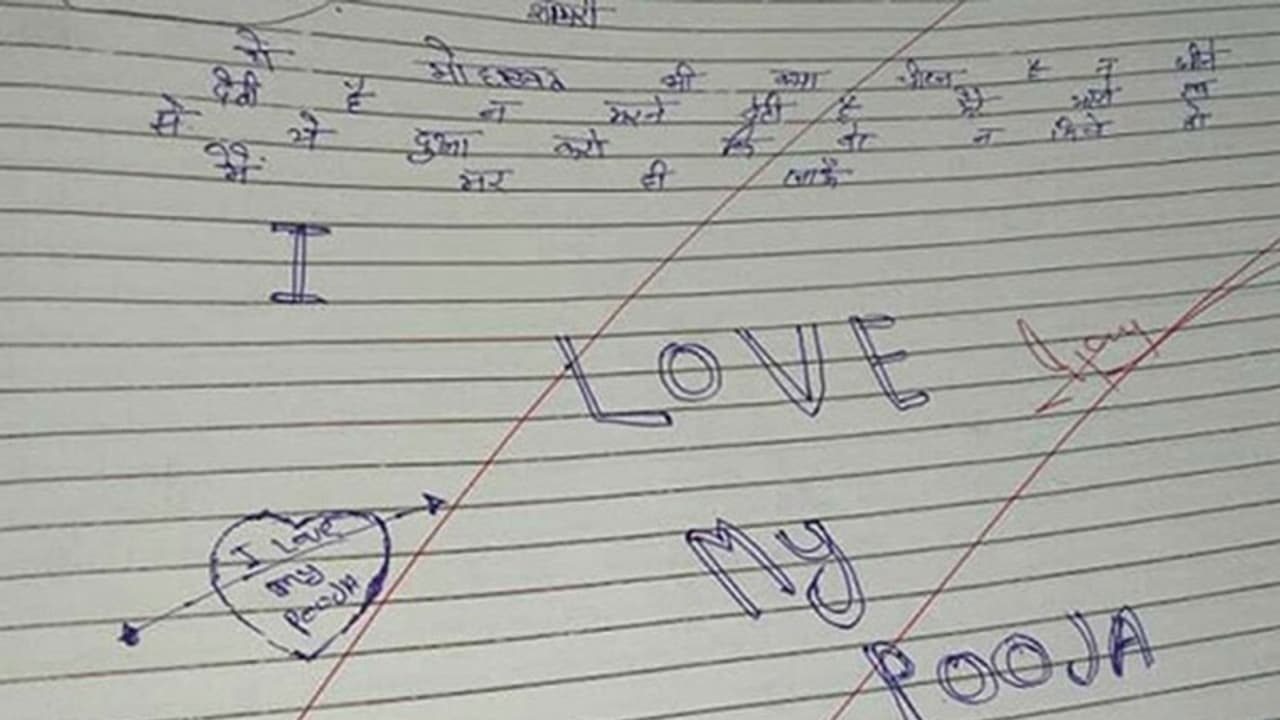 शायरी
ये मोहब्बत भी क्या चीज है न जीने
देती है न मरने देती है हे मेरे
से ये दुआ करो कि वो न मिले तो
मैं मर ही जाऊँ
I
LOVE
My
POOJA
I LOVE
my
POOJA